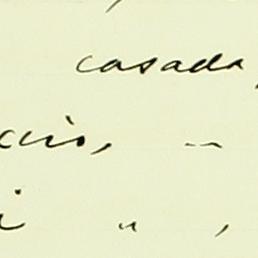 casada,
ccio, "
i " ,